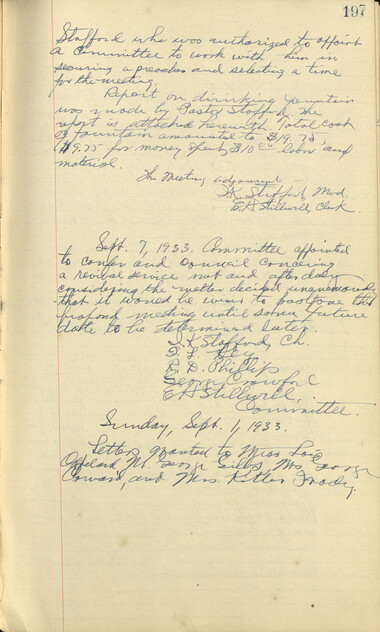 197
Stafford who was authorized to appoint
a Committee to work with him in
securing a preacher and selecting a time
for the meeting.
Report on drinking fountain
was made by Pastor Stafford. The
report is attached herewith Total cost
of fountain amounted to $19.75,
$9.75 for money spent, $10.00 labor and
material.
The Meeting adjourned
I.K. Stafford, Mod.
E.A. Stillwell, Clerk.
Sept. 7, 1933. Committee appointed
to confer and Council concering
a revival service met and after duly
considering the matter decided unanemously
that it would be wiser to postpone this
propond meeting until some future
date to be determined later.
I. K. Stafford, Ch.
Key
D. Phillip
George Crawford
E. A. Stillwell,
Committee.
Sunday, Sept. 1, 1933.
Letters granted to Miss Lois
Mr. George Gibbs, Mrs. George
Coward, and Mrs. Kittie